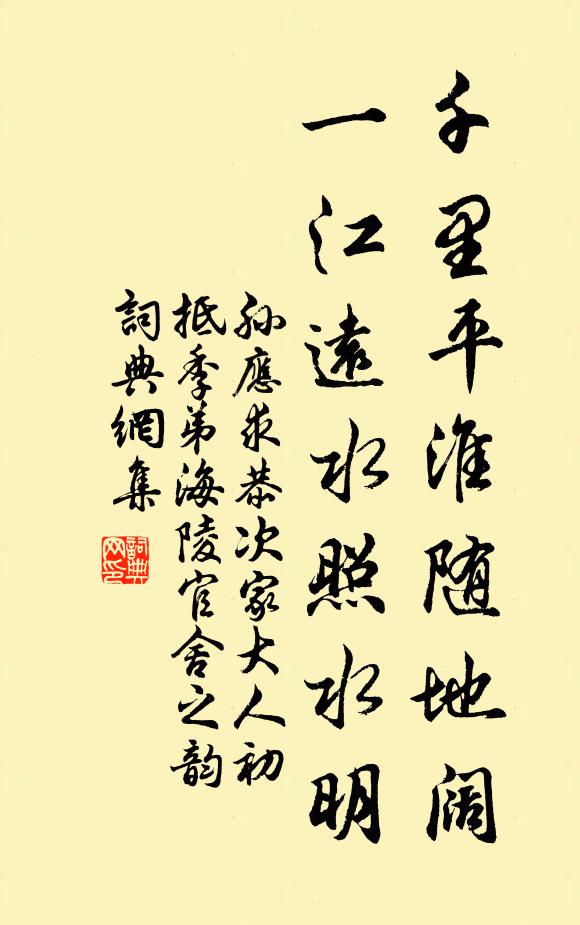 千里平淮随地阔
一江遠水照水明
孫應求恭次家大人初
抵季弟海陵官舍之韵
詞典網集
詞典
网印